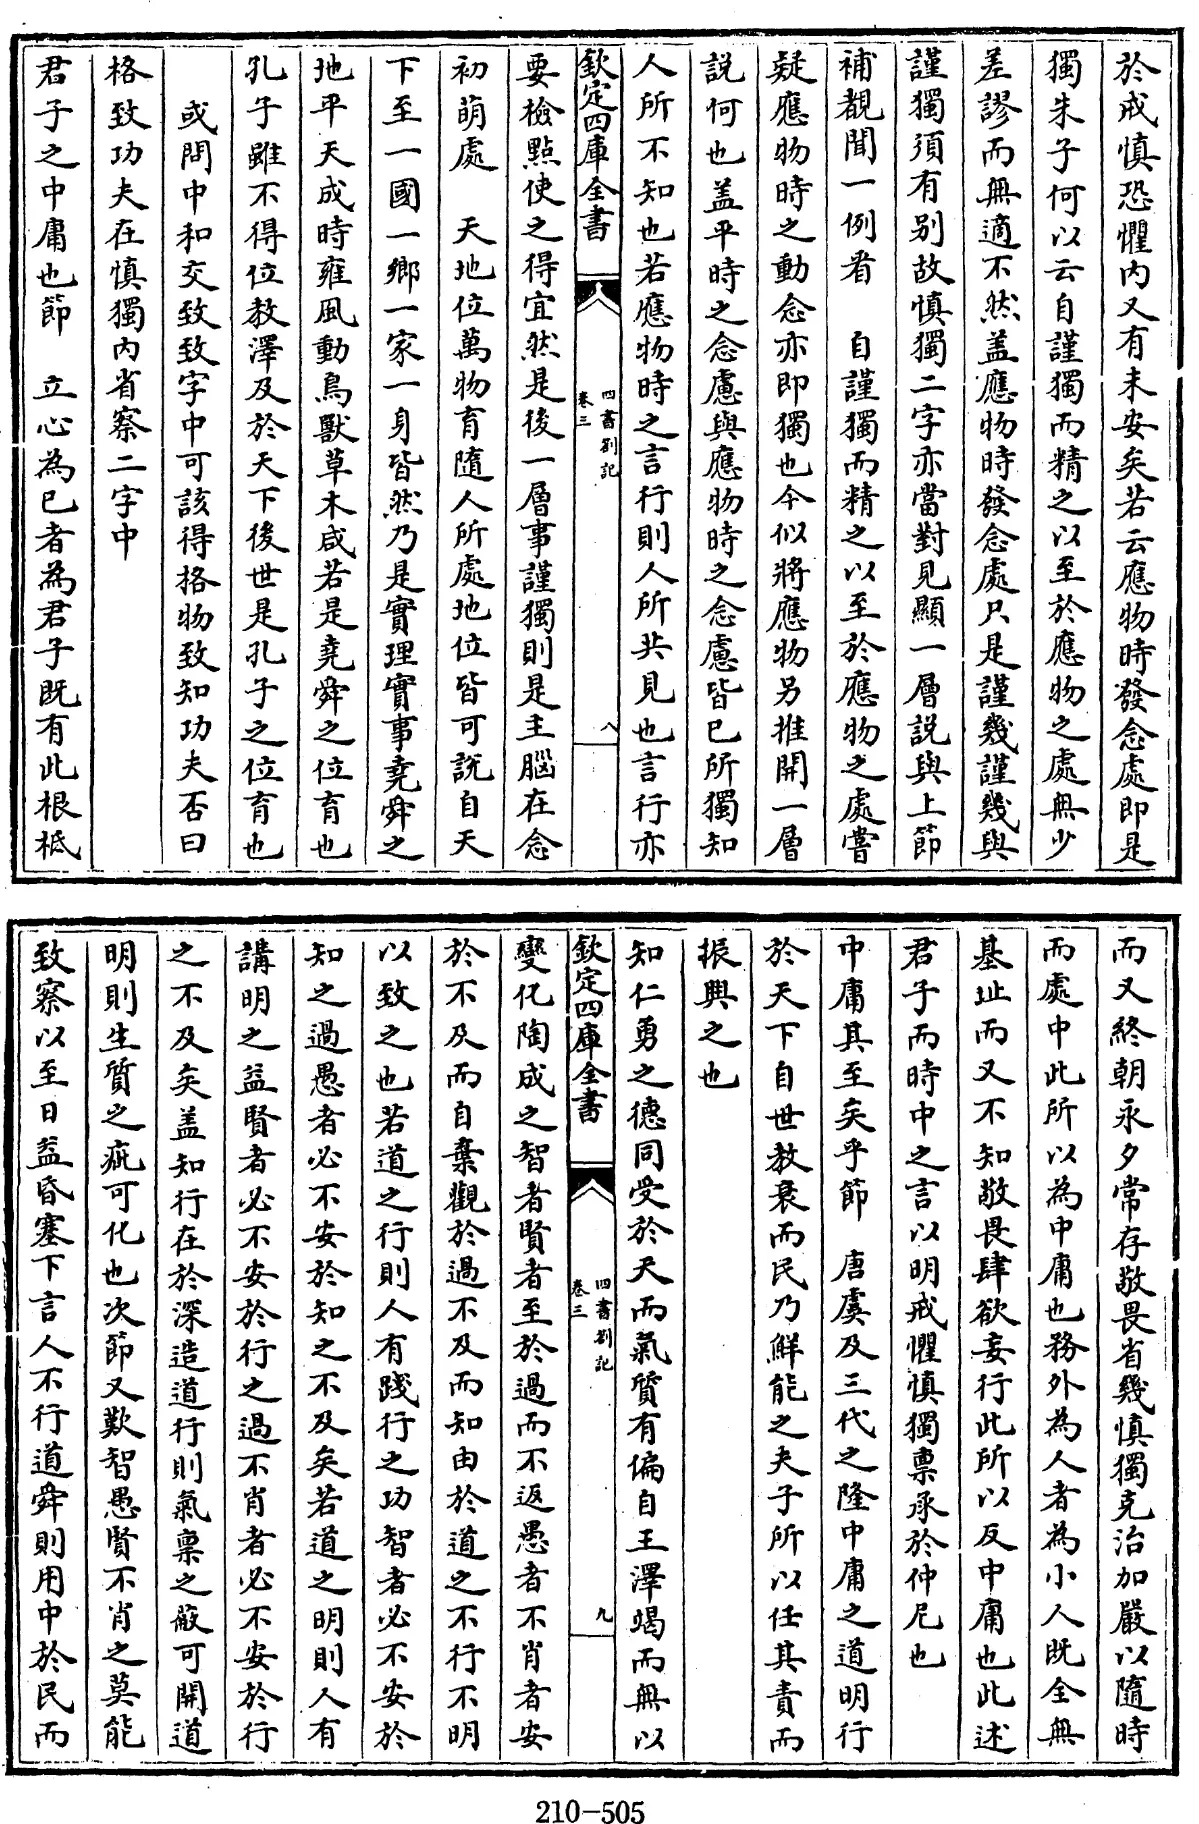 於戒慎恐懼内又有未安矣若云應物時發念處即是
獨朱子何以云自謹獨而精之以至於應物之處無少
差謬而無適不然盖應物時發念處只是謹幾謹幾與
謹獨須有别故慎獨二字亦當對見顯一層説與上節
補覩聞一例看　自謹獨而精之以至於應物之處嘗
疑應物時之動念亦即獨也今似將應物另推開一層
説何也盖平時之念慮與應物時之念慮皆已所獨知
人所不知也若應物時之言行則人所共見也言行亦
欽定四庫全書
四書劄記
卷三
八
要檢點使之得宜然是後一層事謹獨則是主腦在念
初萌處　天地位萬物育隨人所處地位皆可説自天
下至一國一鄉一家一身皆然乃是實理實事堯舜之
地平天成時雍風動鳥獸草木咸若是堯舜之位育也
孔子雖不得位教澤及於天下後世是孔子之位育也
或問中和交致致字中可該得格物致知功夫否曰
格致功夫在慎獨内省察二字中
君子之中庸也節　立心為已者為君子既有此根柢
而又終朝永夕常存敬畏省幾慎獨克治加嚴以隨時
而處中此所以為中庸也務外為人者為小人既全無
基址而又不知敬畏肆欲妄行此所以反中庸也此述
君子而時中之言以明戒懼慎獨禀承於仲尼也
中庸其至矣乎節　唐虞及三代之隆中庸之道明行
於天下自世教衰而民乃鮮能之夫子所以任其責而
振興之也
知仁勇之德同受於天而氣質有偏自王澤竭而無以
欽定四庫全書
四書劄記
卷三
九
變化陶成之智者賢者至於過而不返愚者不肖者安
於不及而自棄觀於過不及而知由於道之不行不明
以致之也若道之行則人有踐行之功智者必不安於
知之過愚者必不安於知之不及矣若道之明則人有
講明之益賢者必不安於行之過不肖者必不安於行
之不及矣盖知行在於深造道行則氣稟之蔽可開道
明則生質之疵可化也次節又歎智愚賢不肖之莫能
致察以至日益昏塞下言人不行道舜則用中於民而
210-505